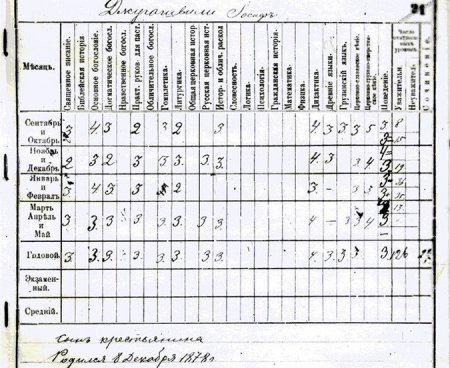 Джугашвили Іосифъ
21
Мѣсяцъ.
Священное писаніе.
Библейская исторія
Основное богословіе.
Догматическое богосл.
Нравственное богосл.
Практ. руков. для паст.
Обличительное богосл.
Гомилетика.
Литургика.
Общая церковная истор
Русская церковная ист.
Истор. и облич. раскол
Словесность.
Логика.
Психологія.
Гражданская исторія.
Математика.
Физика.
Дидактика.
Древніе языки
Грузинскій языкъ.
Церковно-славянское пѣніе.
Поведеніе.
Уважительн
Неуважител.
Сочиненіе.
Сентябрь и Октябрь 3 4 3 3 2 3 2 3 4 3 3 3 5 3 8
Ноябрь и Декабрь 2 3 2 3 3 3 3 3 4 3 3 4 3 19
Январь и Февраль 3 4 3 3 2 3 3 3
Мартъ Апрѣль и Май 3 3 3 3 3 3 3 3 4 3 3 4 3
Годовой. 3 3 3 3 3 3 3 3 4 3 3 3 3 126
Экзаменный.
Средній.
сынъ крестьянина
Родился 6 Декабря 1878 г